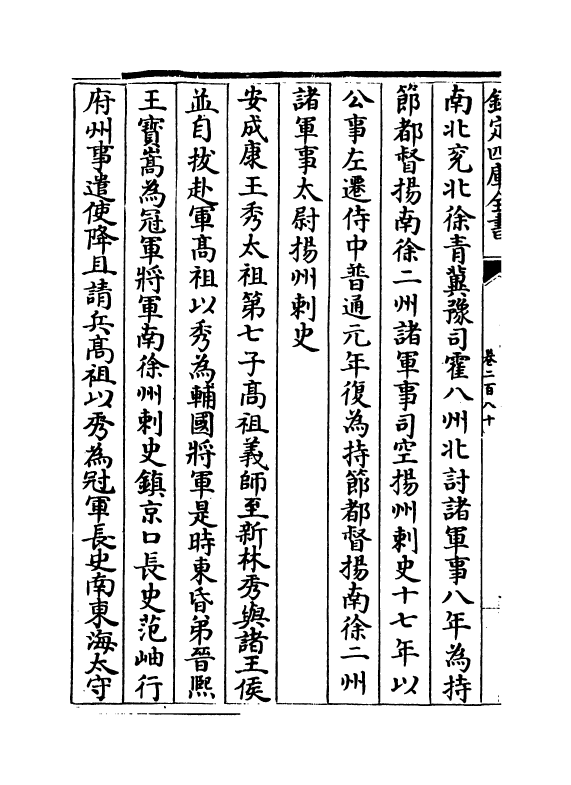 欽定四庫全書
卷二百八十
南北兖北徐青冀豫司霍八州北討諸軍事八年為持
節都督揚南徐二州諸軍事司空揚州刺史十七年以
公事左遷侍中普通元年復為持節都督揚南徐二州
諸軍事太尉揚州刺史
安成康王秀太祖第七子高祖義師至新林秀與諸王侯
並自拔赴軍高祖以秀為輔國將軍是時東昏弟晉熙
王寶嵩為冠軍將軍南徐州刺史鎮京口長史范岫行
府州事遣使降且請兵高祖以秀為冠軍長史南東海太守